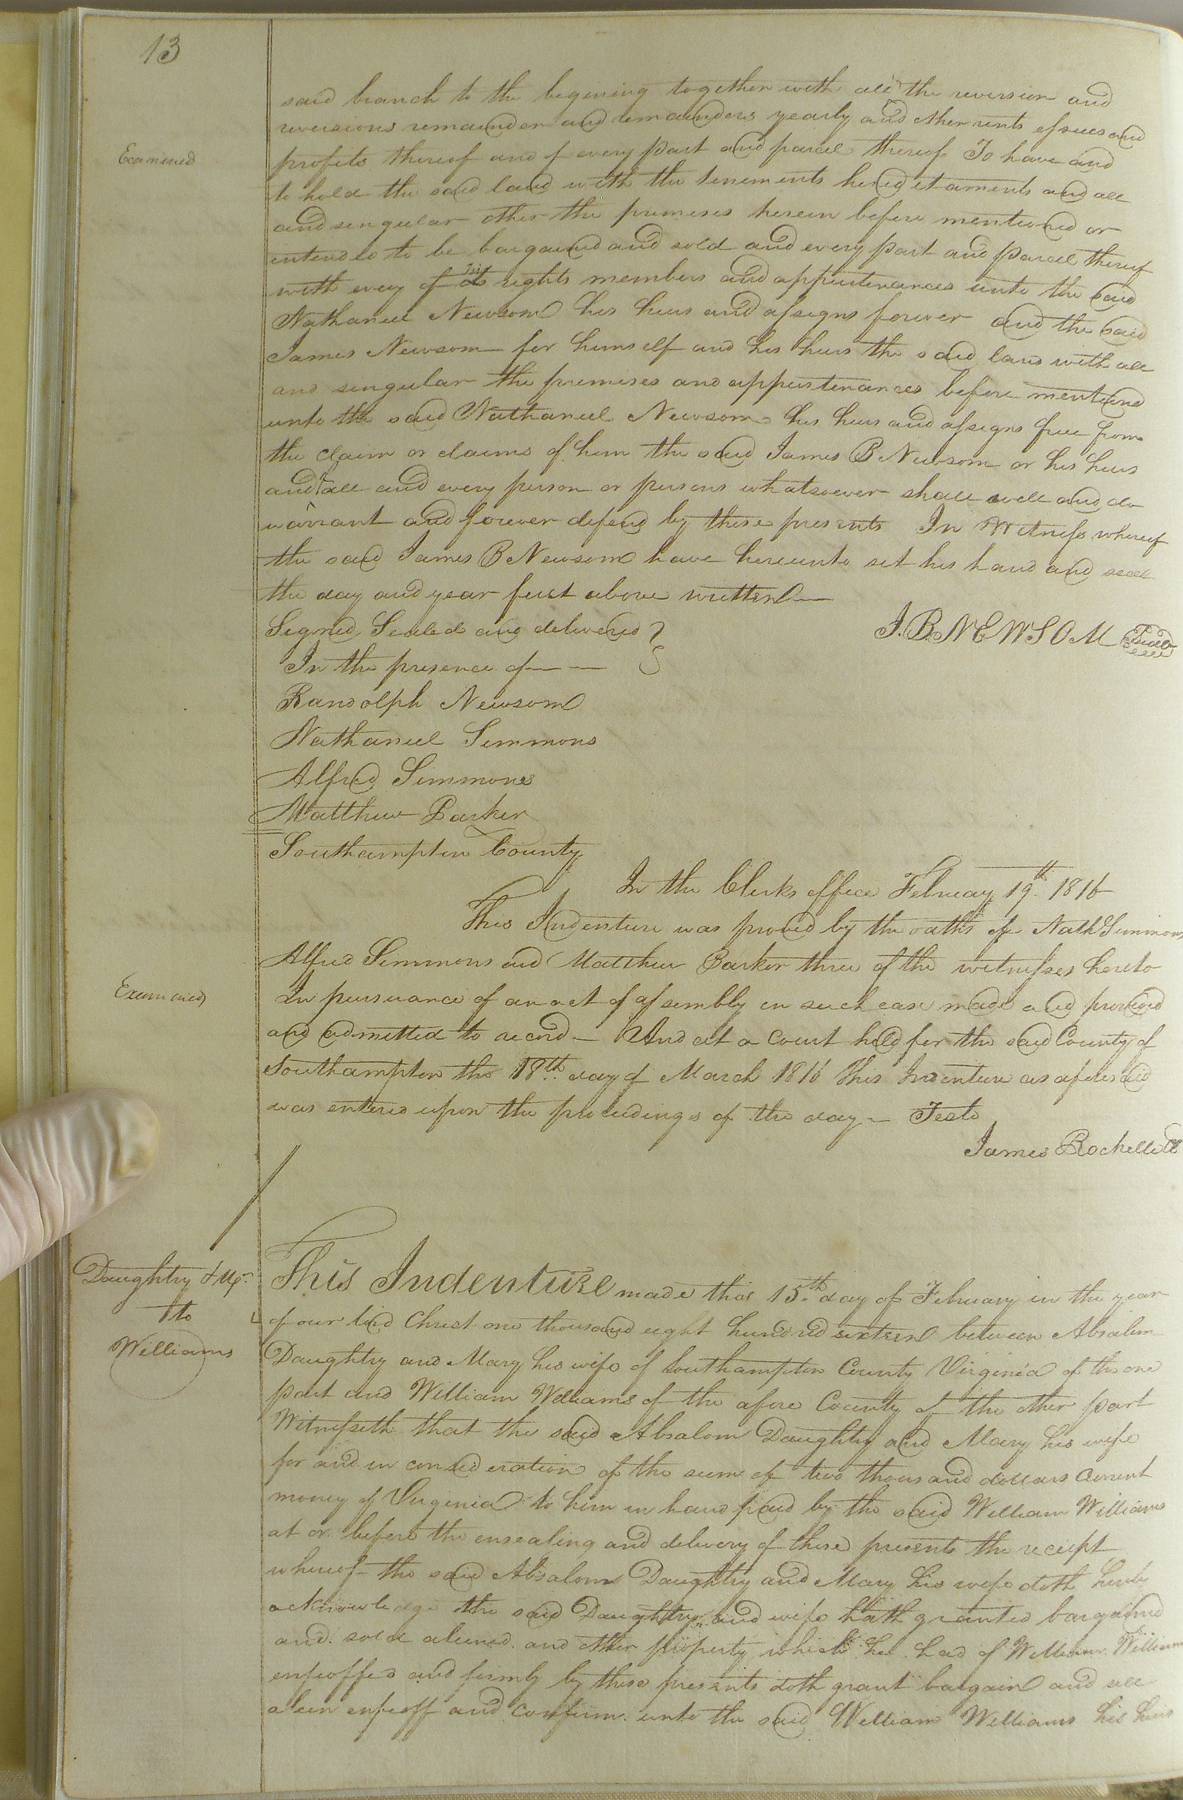 13
said branch to the begining together with all the reversion and
reversions remainder and remainders yearly and other rents essues and
Examined
profits thereof and of every part and parcel thereof To have and
to hold the said land with the tenements hereditaments and all
and singular other the premises herein before mentioned or
intended to be bargained and sold and every part and parcel thereof
with every of its rights members and appurtenances unto the said
Nathaniel Newsom his heirs and assigns forever and the said
James Newsom for himself and his heirs the said land with all
and singular the premises and appurtenances before mentioned
unto the said Nathaniel Newsom his heirs and assigns free from
the claim or claims of him the said James B Newsom or his heirs
and all and every person or persons whatsoever shall well and do
warrant and forever defend by these presents In Witness whereof
the said James B Newsom have hereunto set his hand and seal
the day and year first above written
Signed Sealed and delivered
J. B. NEWSOM Seal
In the presence of
Randolph Newsom
Nathaniel Simmons
Alfred Simmons
Matthew Barker
Southampton County
In the Clerks office February 19th 1816
This Indenture was proved by the oaths of Nath Simmons
Alfred Simmons and Matthew Barker three of the witnesses hereto
Examined
In pursuance of an act of assembly in such case made and provided
and admitted to record - And at a Court held for the said County of
Southampton the 18th day of March 1816 This Indenture as aforesaid
was entered upon the proceedings of the day - Teste
James Rochelle CC
Daughtry & Ux
to
Williams
This Indenture made this 15th day of February in the year
of our lord Christ one thousand eight hundred sixteen between Absalom
Daughtry and Mary his wife of Southampton County Virginia of the one
part and William Williams of the afore County of the other part
Witnesseth that the said Absalom Daughtry and Mary his wife
for and in consideration of the sum of two thousand dollars current
money of Virginia to him in hand paid by the said William Williams
at or before the ensealing and delivery of these presents the receipt
whereof the said Absalom Daughtry and Mary his wife doth hereby
acknowledge the said Daughtry and wife hath granted bargained
and sold aliened and other property which he had of William Williams
enfeoffed and firmly by these presents doth grant bargain and
alien enfeoff and confirm unto the said William Williams his heirs